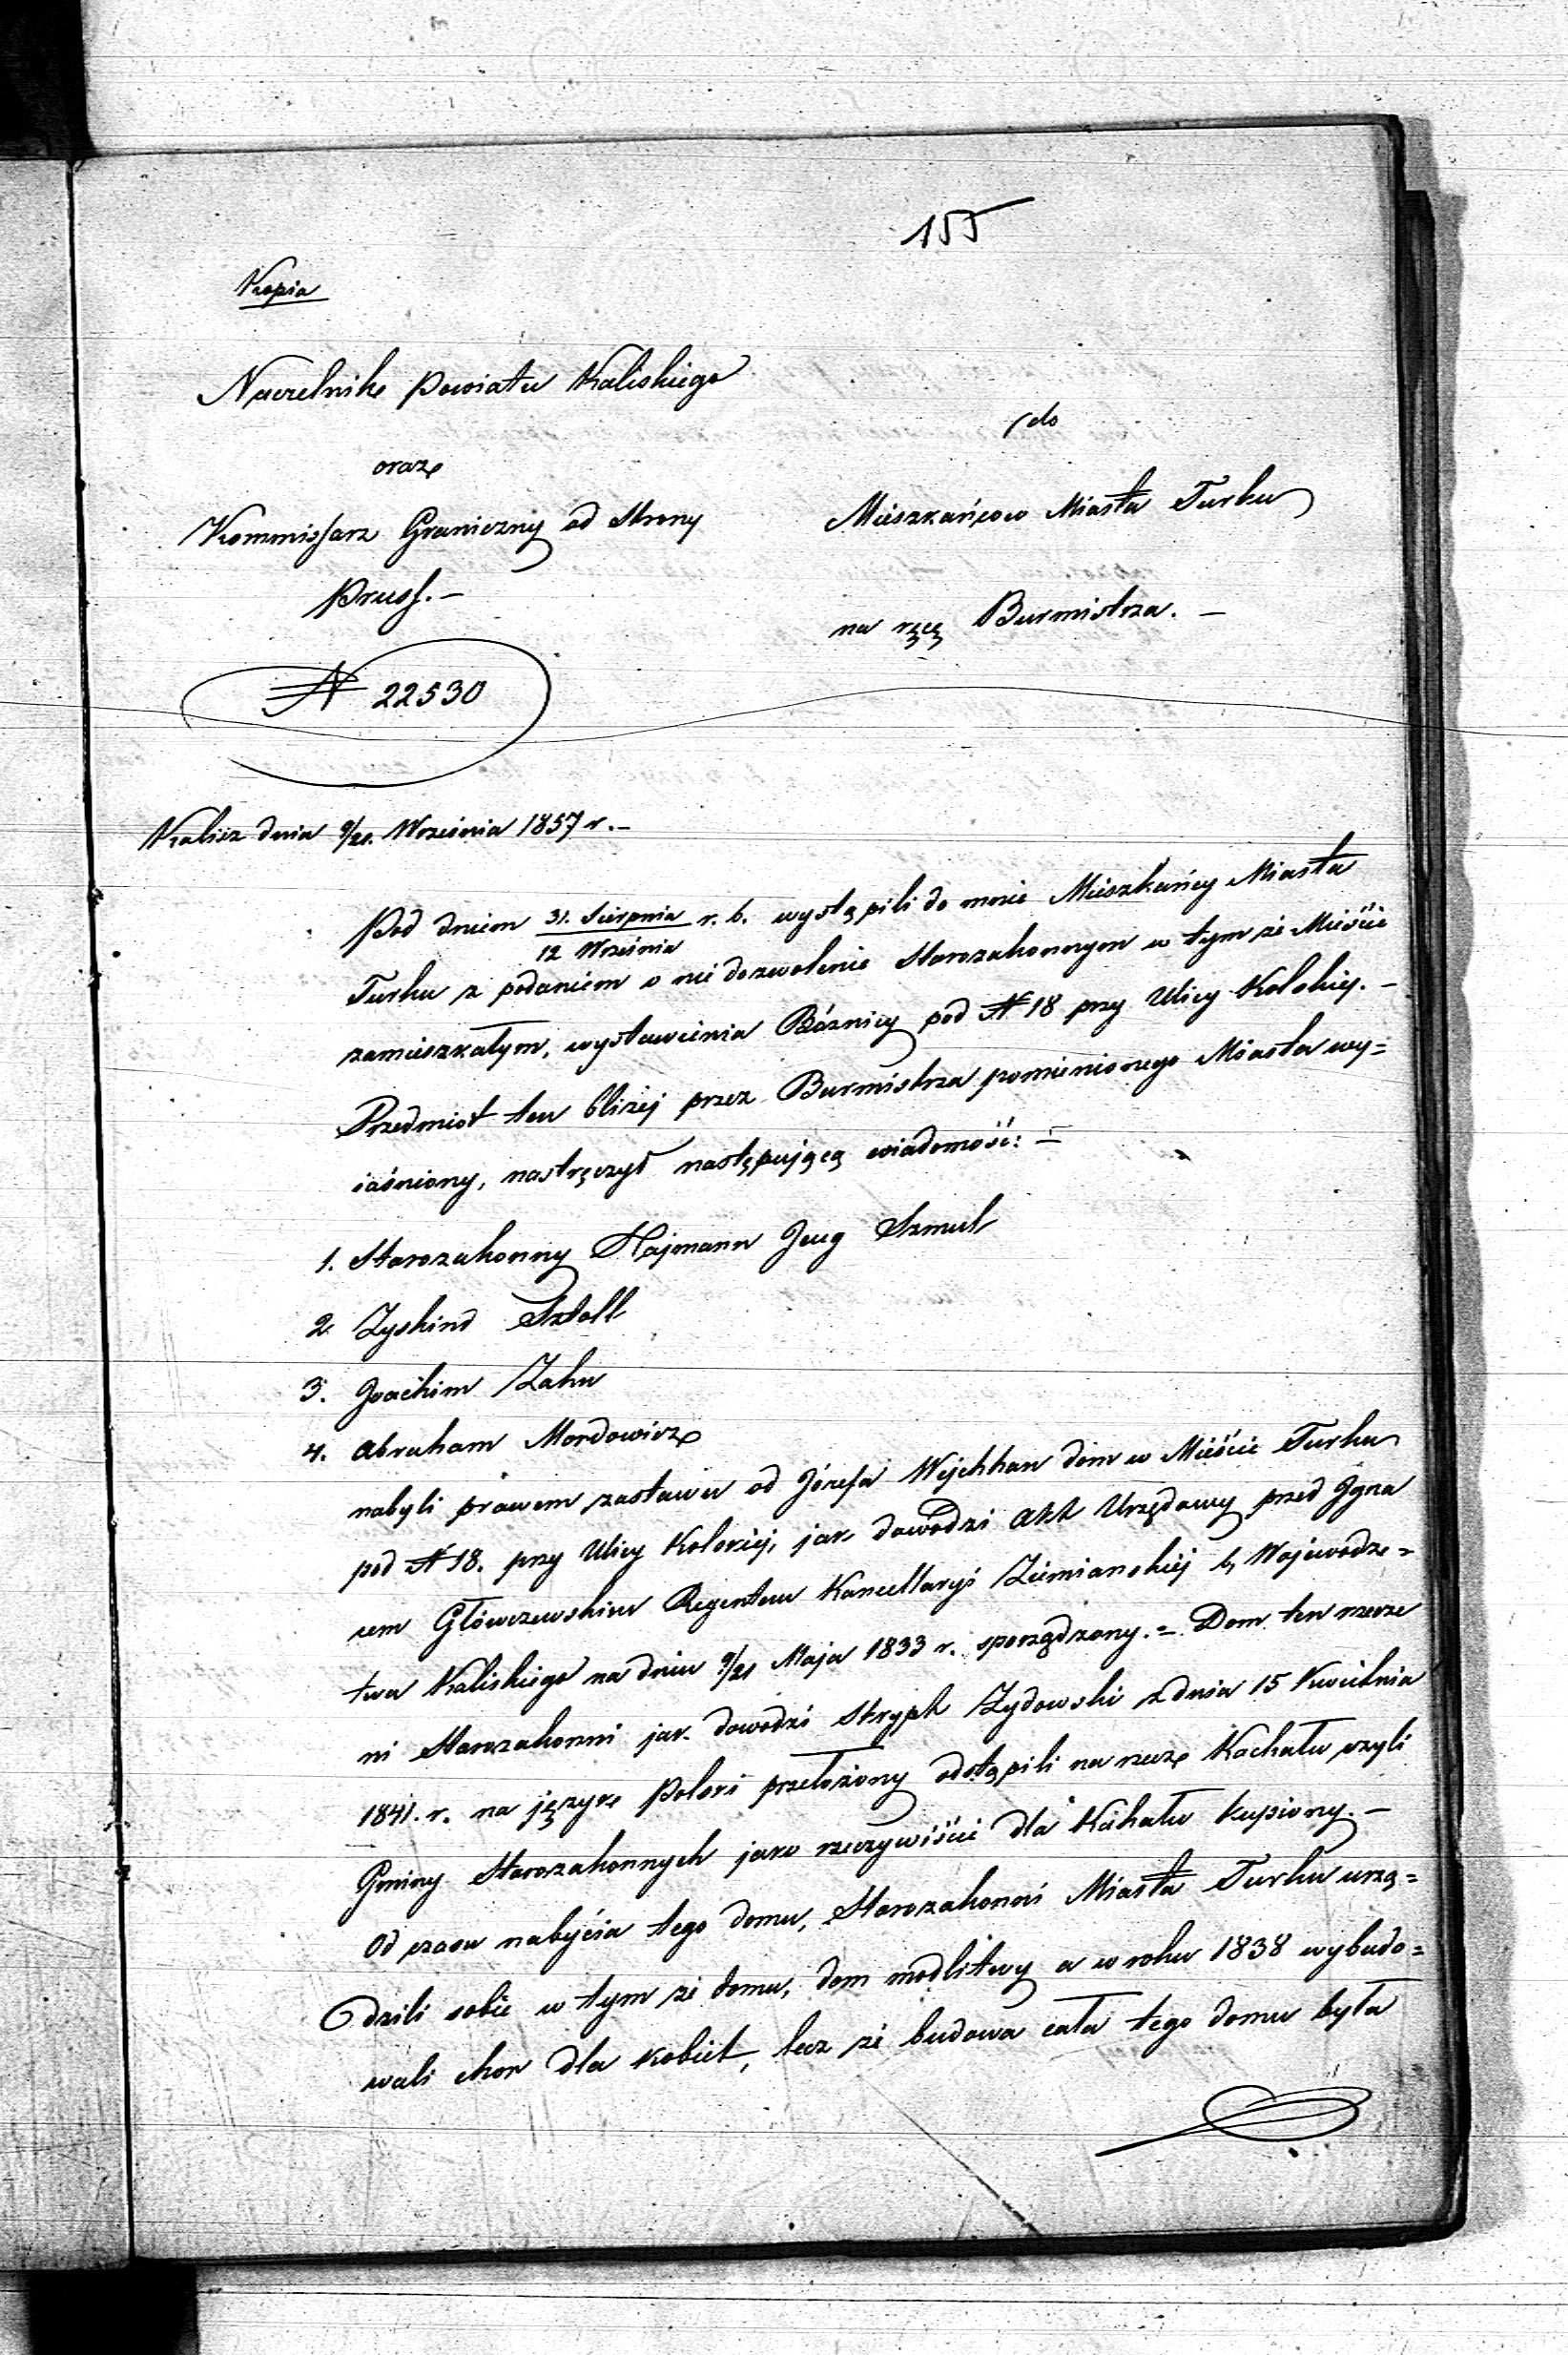 155
Kopia
Naczelnik Powiatu Kaliskiego
oraz
Kommissarz Graniczny od Strony
Pruss. –
№ 22530
do
Mieszkańcow Miasta Turku
na ręcę Burmistrza. –
Kalisz dnia 9/21. Września 1857 r. –
Pod dniem 31. Sierpnia / 12 Września r. b. wystąpili do mnie Mieszkańcy Miasta
Turku z podaniem o nie dozwolenie Starozakonnym w tym że Mieście
zamieszkałym, wystawienia Bóżnicy pod № 18 przy Ulicy Kolskiej. –
Przedmiot ten bliżej przez Burmistrza pomienionego Miasta wy=
iaśniony, nastręczył następującą wiadomość: –
1. Starozakonny Hajmann Szmul
2. Zyskind Sztoll
3. Joachim Zahn
4. Abraham Mordowicz
nabyli prawem zastawu od Józefa dom w Mieście Turku
pod № 18. przy Ulicy Kolskiej, jak dowodzi Akt Urzędowy przed Igna
cem Główczewskim Regentem Kancellaryi Ziemianskiej b. Wojewodz=
twa Kaliskiego na dniu 9/21 Maja 1833 r. sporządzony. = Dom ten rzecze
ni Starozakonni jak dowodzi Skrypt Zydowski z dnia 15 Kwietnia
1841. r. na język Polski przełożony odstąpili na rzecz Kachału czyli
Gminy Starozakonnych jako rzeczywiście dla Kahału kupiony. –
Od czasu nabycia tego domu, Starozakonni Miasta Turku urzą=
dzili sobie w tym że domu, dom modlitwy a w roku 1838 wybudo=
wali chor dla kobiet, lecz że budowa cała tego domu była